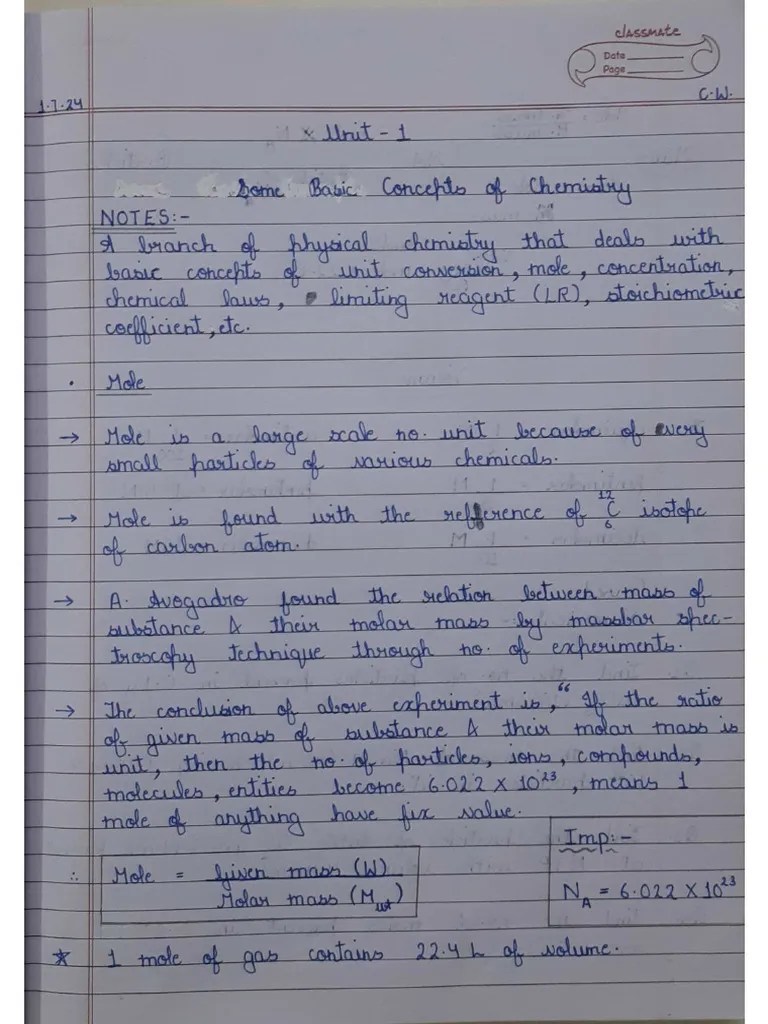 classmate
Date
Page
1.7.24
C.W.
Unit - 1
Some Basic Concepts of Chemistry
NOTES:-
A branch of physical chemistry that deals with
basic concepts of unit conversion, mole, concentration,
chemical laws, limiting reagent (LR), stoichiometric
coefficient, etc.
• Mole
→ Mole is a large scale no. unit because of very
small particles of various chemicals.
→ Mole is found with the reference of ¹²₆C isotope
of carbon atom.
→ A. Avogadro found the relation between mass of
substance & their molar mass by massbar spec-
troscopy technique through no. of experiments.
→ The conclusion of above experiment is, “If the ratio
of given mass of substance & their molar mass is
unit, then the no. of particles, ions, compounds,
molecules, entities become 6.022 × 10²³, means 1
mole of anything have fix value.
Imp:-
∴ Mole = Given mass (W)
Molar mass (Mwt)
N_A = 6.022 × 10²³
* 1 mole of gas contains 22.4 L of volume.